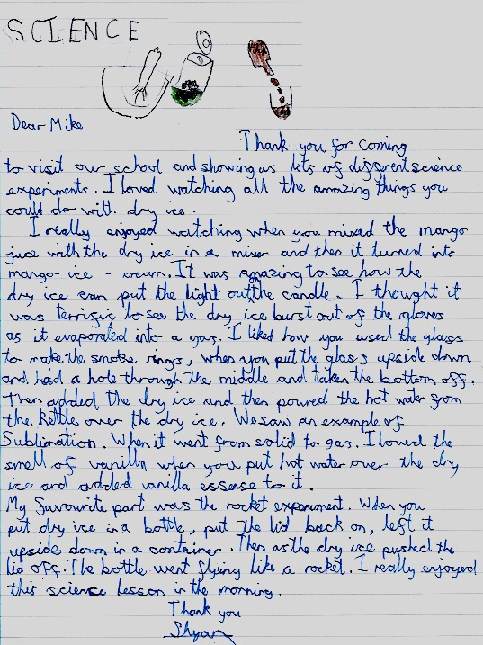 SCIENCE
Dear Mike
Thank you for coming
to visit our school and showing us lots of different science
experiments. I loved watching all the amazing things you
could do with dry ice.
I really enjoyed watching when you mixed the mango
juice with the dry ice in a mixer and then it turned into
mango-ice-cream. It was amazing to see how the
dry ice can put the light out the candle. I thought it
was terrific to see the dry ice burst out of the gloves
as it evaporated into a gas. I liked how you used the glass
to make the smoke rings, when you put the glass upside down
and had a hole through the middle and taken the bottom off.
Then added the dry ice and then poured the hot water from
the kettle over the dry ice. We saw an example of
Sublimation. When it went from solid to gas. I loved the
smell of vanilla when you put hot water over the dry
ice and added vanilla essense to it.
My favourite part was the rocket experiment. When you
put dry ice in a bottle, put the lid back on, left it
upside down in a container. Then as the dry ice pushed the
lid off. The bottle went flying like a rocket. I really enjoyed
this science lesson in the morning.
Thank you